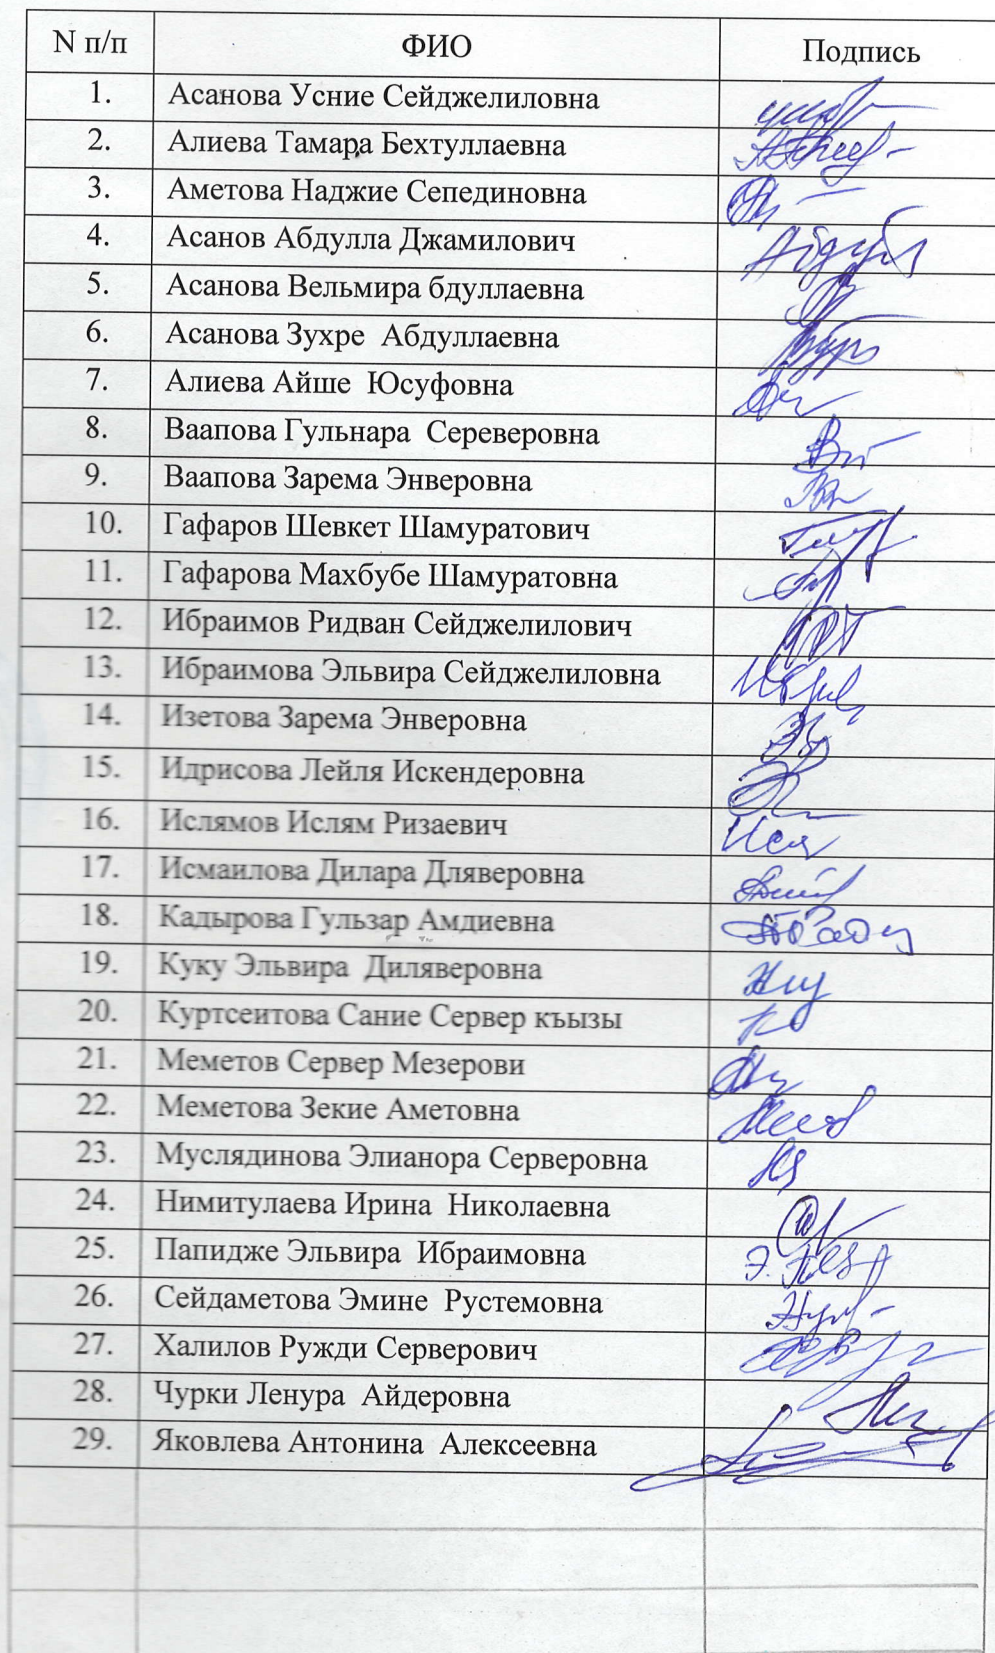 N п/п ФИО Подпись
1. Асанова Усние Сейджелиловна
2. Алиева Тамара Бехтуллаевна
3. Аметова Наджие Сепединовна
4. Асанов Абдулла Джамилович
5. Асанова Вельмира бдуллаевна
6. Асанова Зухре Абдуллаевна
7. Алиева Айше Юсуфовна
8. Ваапова Гульнара Сереверовна
9. Ваапова Зарема Энверовна
10. Гафаров Шевкет Шамуратович
11. Гафарова Махбубе Шамуратовна
12. Ибраимов Ридван Сейджелилович
13. Ибраимова Эльвира Сейджелиловна
14. Изетова Зарема Энверовна
15. Идрисова Лейля Искендеровна
16. Ислямов Ислям Ризаевич
17. Исмаилова Дилара Дляверовна
18. Кадырова Гульзар Амдиевна
19. Куку Эльвира Диляверовна
20. Куртсеитова Сание Сервер къызы
21. Меметов Сервер Мезерови
22. Меметова Зекие Аметовна
23. Муслядинова Элианора Серверовна
24. Нимитулаева Ирина Николаевна
25. Папидже Эльвира Ибраимовна
26. Сейдаметова Эмине Рустемовна
27. Халилов Ружди Серверович
28. Чурки Ленура Айдеровна
29. Яковлева Антонина Алексеевна